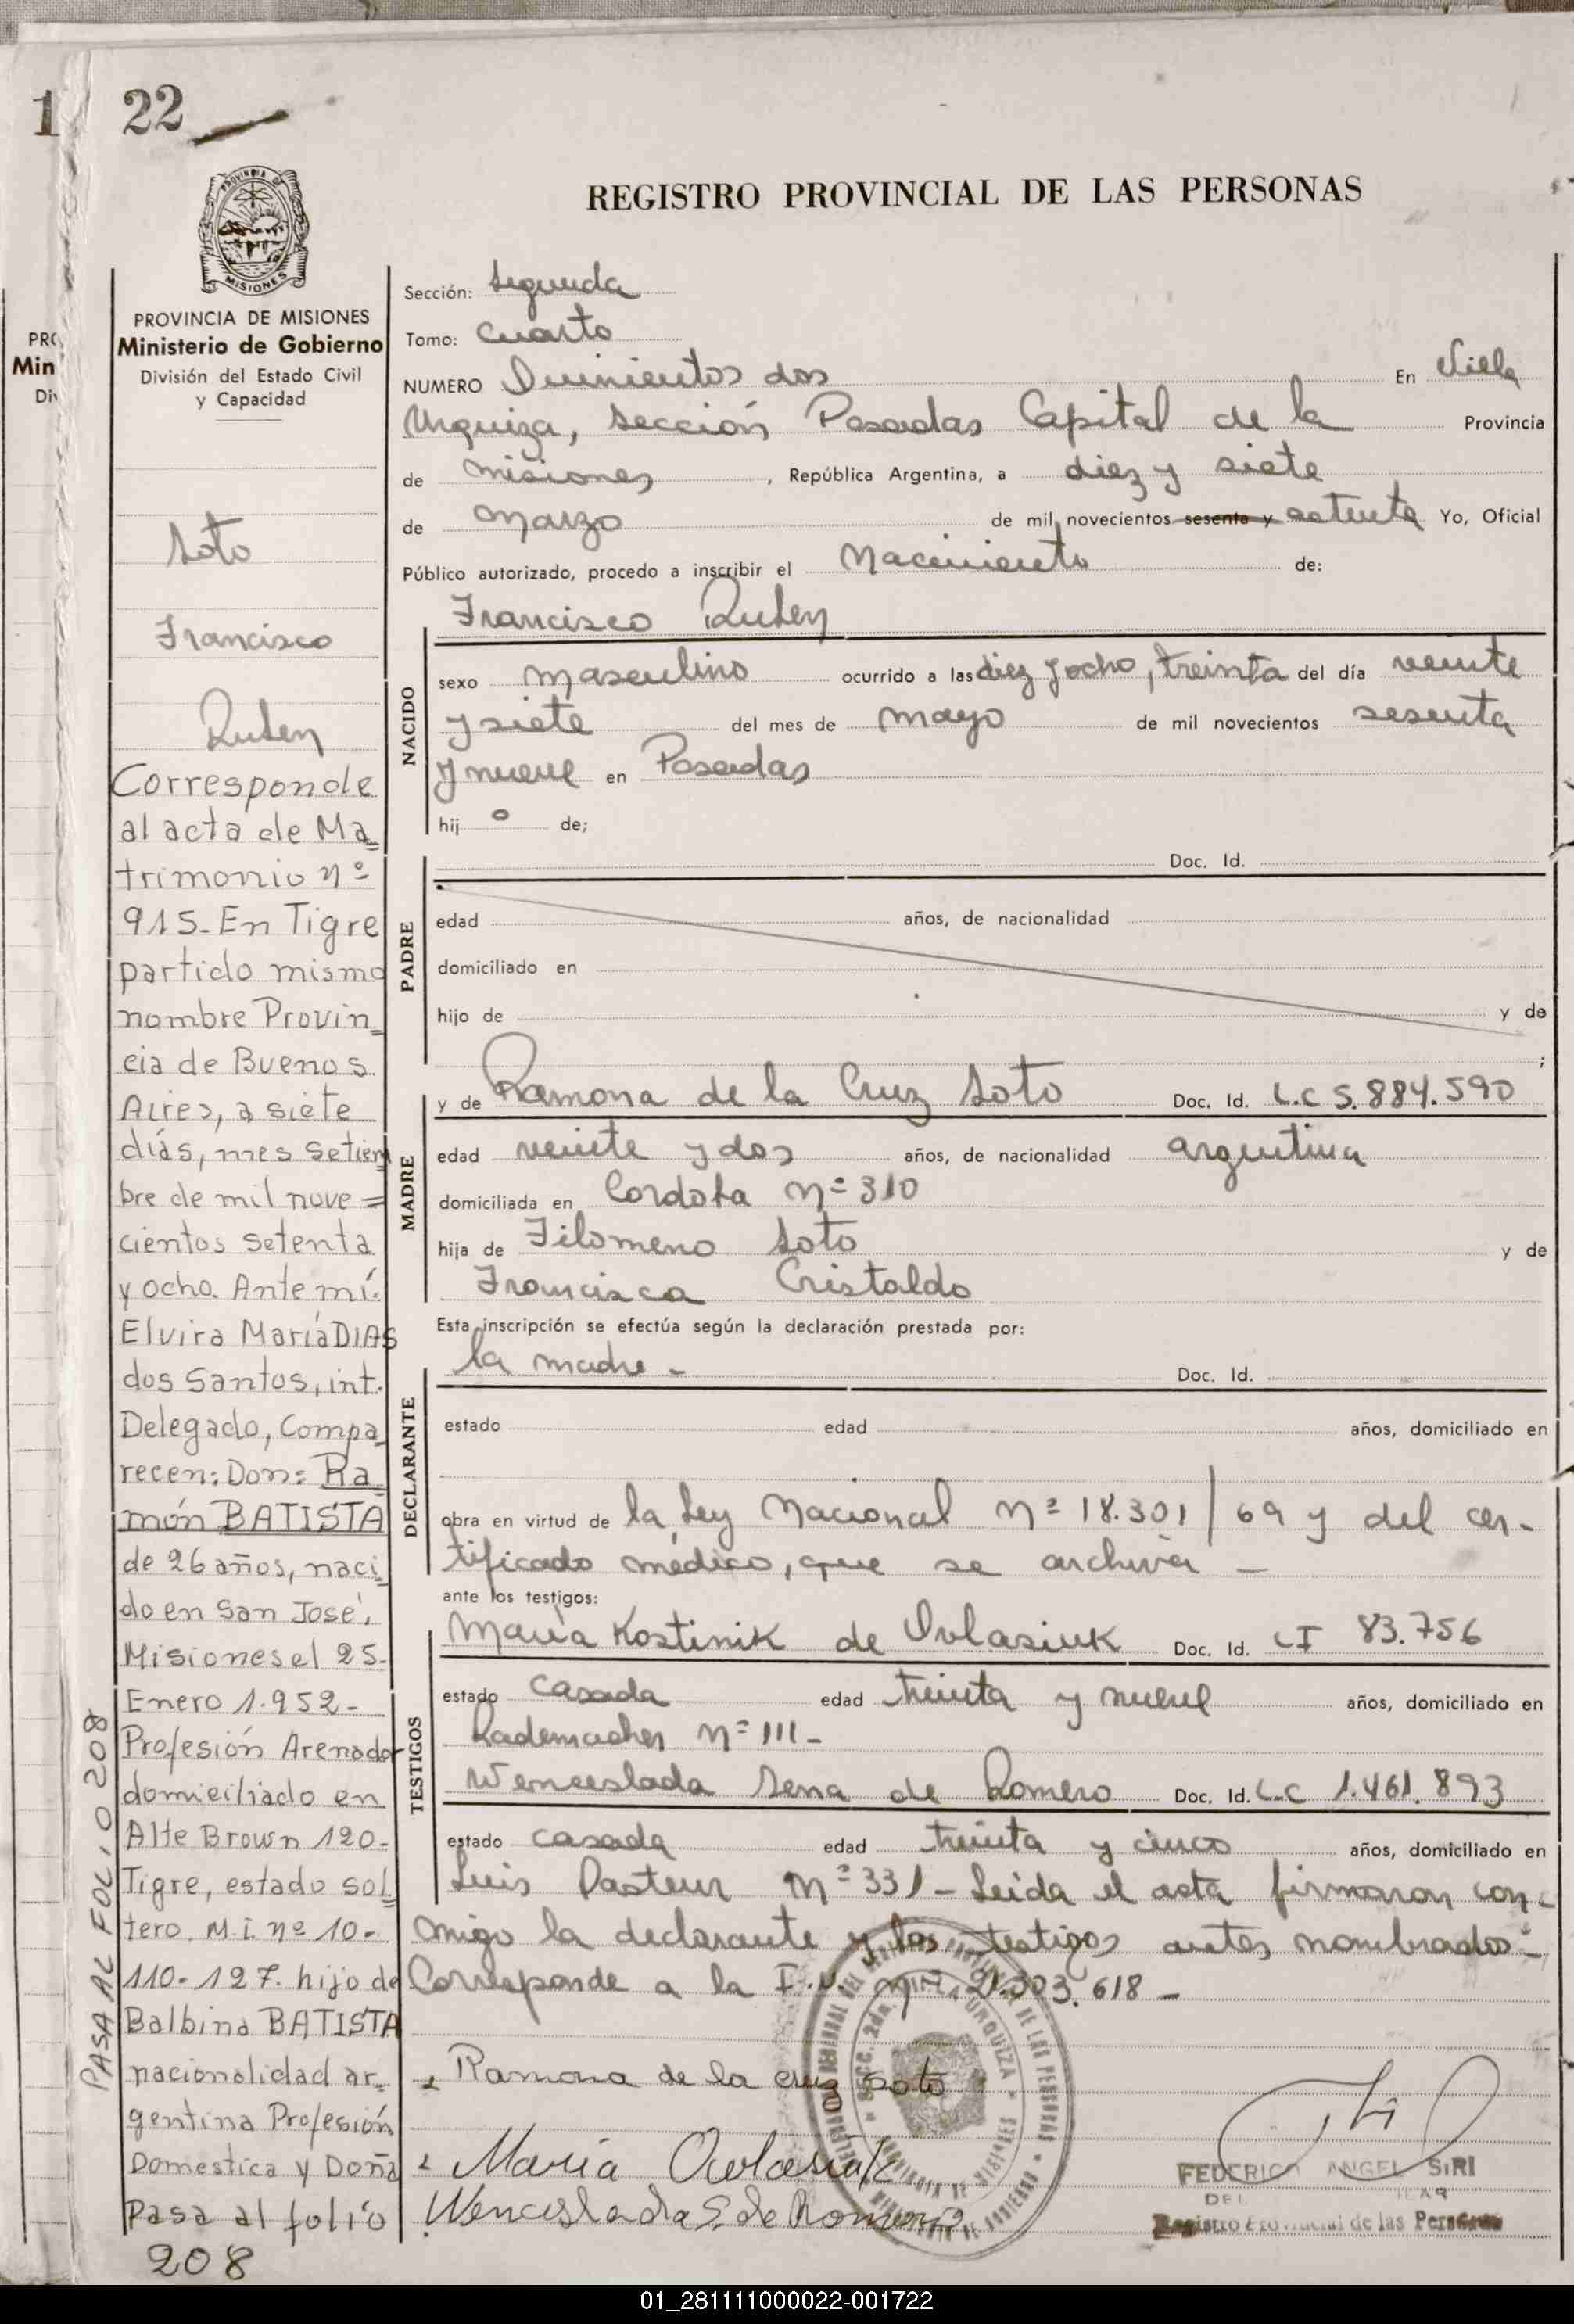 1 22
REGISTRO PROVINCIAL DE LAS PERSONAS
PROVINCIA DE
MISIONES
PROVINCIA DE MISIONES
Ministerio de Gobierno
División del Estado Civil
y Capacidad
Soto
Francisco
Ruben
Corresponde
al acta de Ma
trimonio nº
915- En Tigre
partido mismo
nombre Provin
cia de Buenos
Aires, a siete
días, mes setiem
bre de mil nove =
cientos setenta
y ocho. Ante mí.
Elvira María DIAS
dos Santos, int.
Delegado, Compa
recen: Don: Ra
món BATISTA
de 26 años, naci
do en San José,
Misiones el 25-
Enero 1.952-
Profesión Arenador
domiciliado en
Alte Brown 120-
Tigre, estado sol
tero. M.I. nº 10-
110-127. hijo de
Balbina BATISTA
nacionalidad ar-
gentina Profesión
Domestica y Doña
Pasa al folio
208
PASA AL FOLIO 208
Sección: Segunda
Tomo: Cuarto
NUMERO Quinientos dos En Villa
Urquiza, Sección Posadas Capital de la Provincia
de Misiones , República Argentina, a diez y siete
de Marzo de mil novecientos sesenta y setenta Yo, Oficial
Público autorizado, procedo a inscribir el Nacimiento de:
Francisco Ruben
NACIDO
sexo masculino ocurrido a las diez y ocho, treinta del día veinte
y siete del mes de mayo de mil novecientos sesenta
y nueve en Posadas
hij o de;
PADRE
Doc. Id.
edad años, de nacionalidad
domiciliado en
hijo de y de
;
MADRE
y de Ramona de la Cruz Soto Doc. Id. L.C 5.884.590
edad veinte y dos años, de nacionalidad argentina
domiciliada en Cordoba Nº 310
hija de Filomeno Soto y de
Francisca Cristaldo
Esta inscripción se efectúa según la declaración prestada por:
DECLARANTE
la madre - Doc. Id.
estado edad años, domiciliado en
obra en virtud de la Ley Nacional Nº 18.301/69 y del cer-
tificado médico, que se archiva -
ante los testigos:
TESTIGOS
Maria Kostinik de Ovlasiuk Doc. Id. CI 83.756
estado Casada edad treinta y nueve años, domiciliado en
Rademacher Nº 111-
Wenceslada Sena de Romero Doc. Id. L.C 1.461.893
estado casada edad treinta y cinco años, domiciliado en
Luis Pasteur Nº 331- Leida el acta firmaron con-
migo la declarante y los testigos antes nombrados-
Corresponde a la I.U. Nº 21.303.618-
Ramona de la cruz soto
María Ovlasiuk
Wenceslada S. de Romero
FEDERICO ANGEL SIRI
Registro Provincial de las Personas
01_281111000022-001722